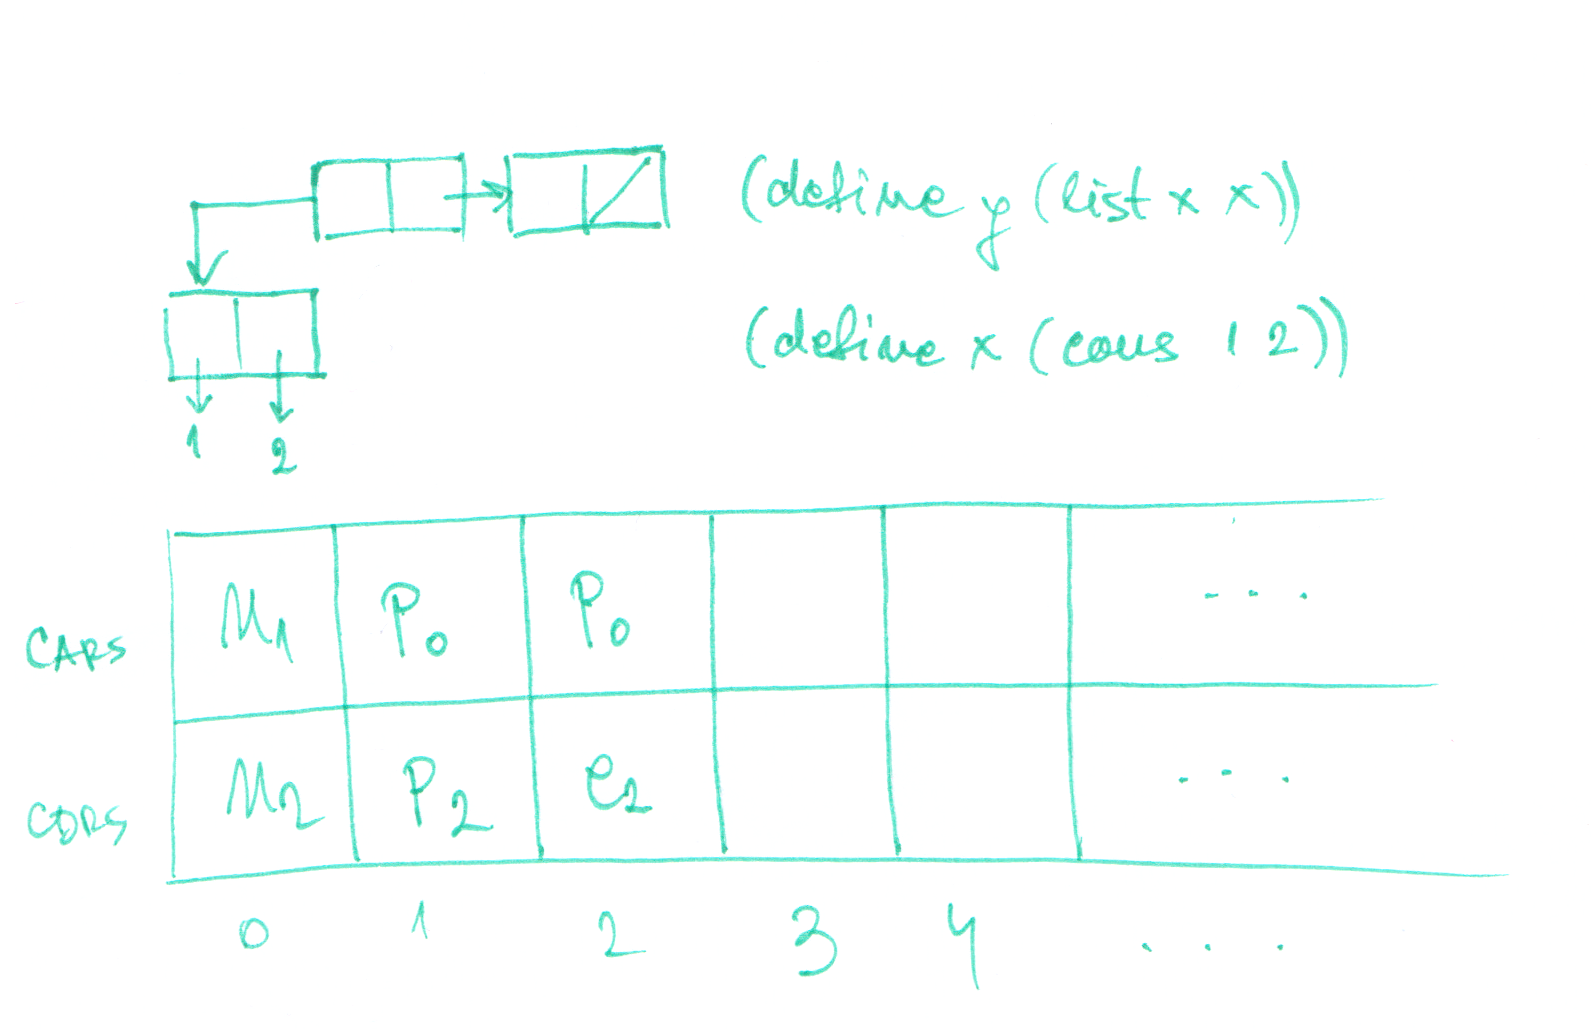 (define y (list x x))
(define x (cons 1 2))
1 2
CARS n1 P0 P0 ...
CDRS n2 P2 e2 ...
0 1 2 3 4 ....